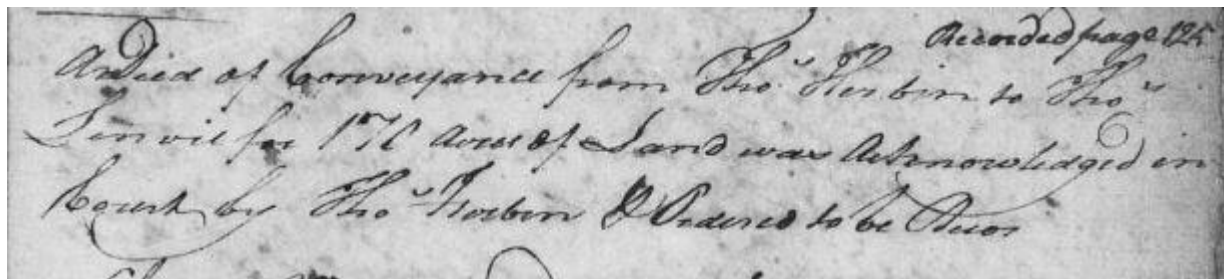 Recorded page 125
A Deed of Conveyance from Thos Harbin to Thos
Linvil for 170 Acres of Land was Acknowledged in
Court by Thos Harbin & Ordered to be Recor